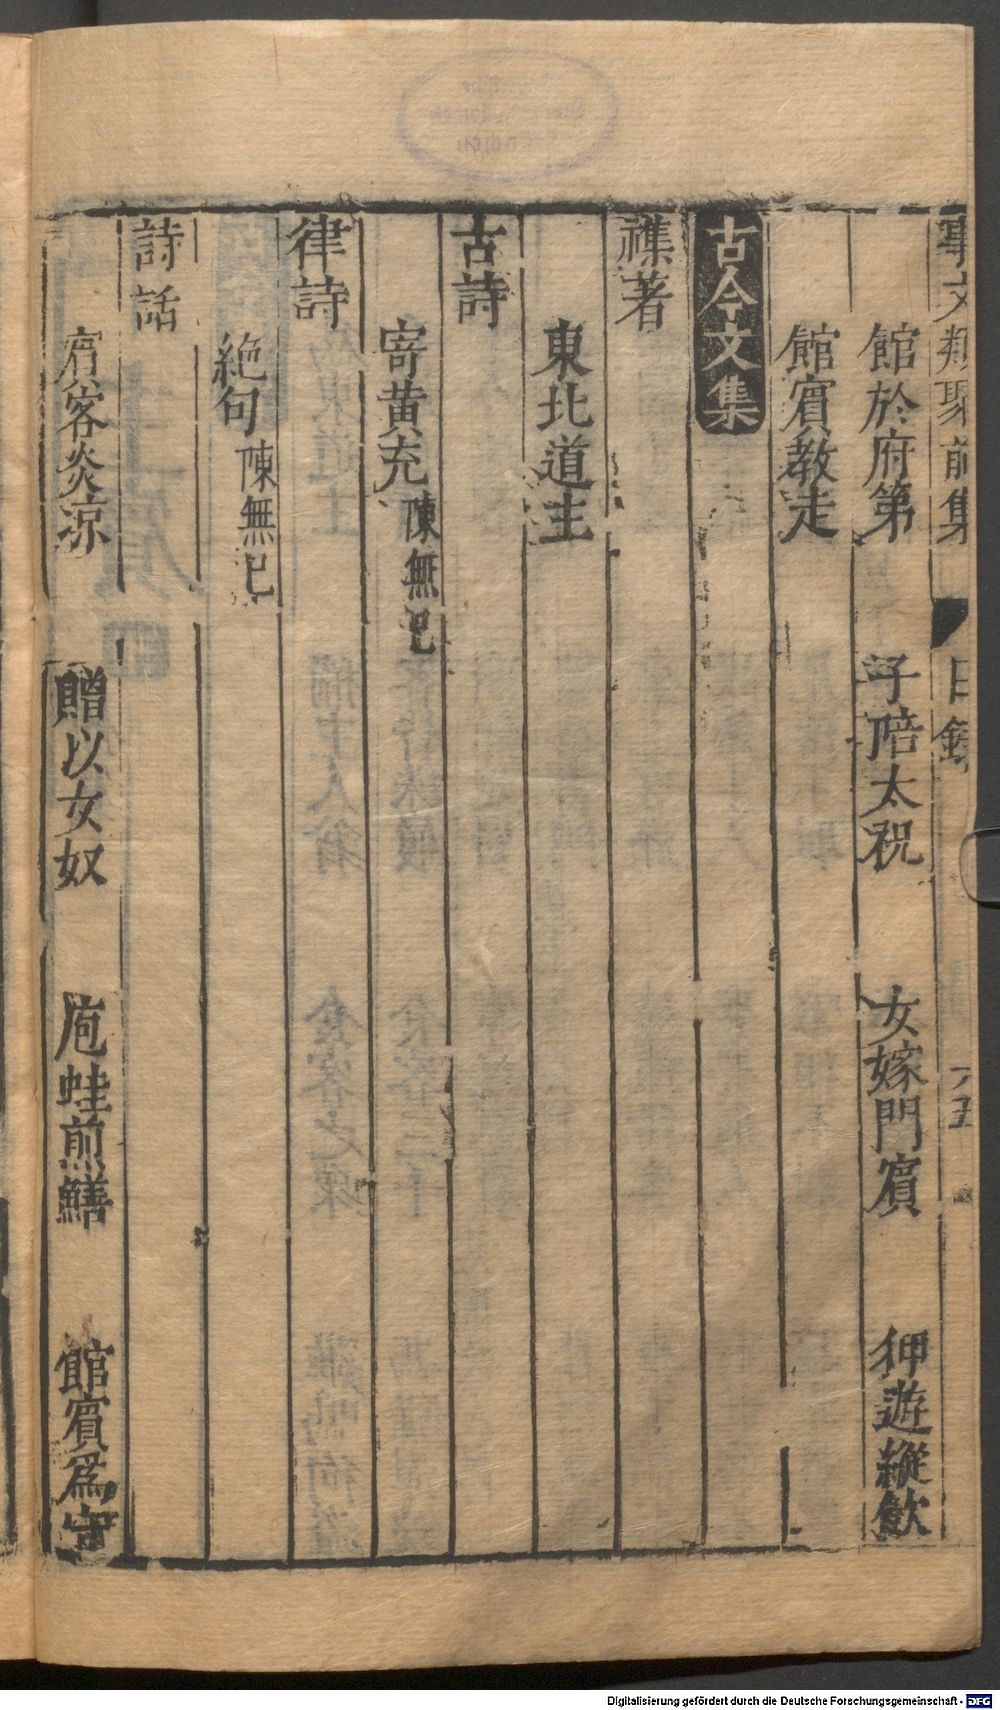 事文類聚前集 目録 六五
館於府第 子陪太祝 女嫁門賓 狎遊縱飲
館賓教走
古今文集
襍著
東北道主
古詩
寄黄充 陳無已
律詩
絶句 陳無已
詩話
賓客炎凉 贈以女奴 庖蛙煎鱔 館賓爲
Digitalisierung gefördert durch die Deutsche Forschungsgemeinschaft - DFG